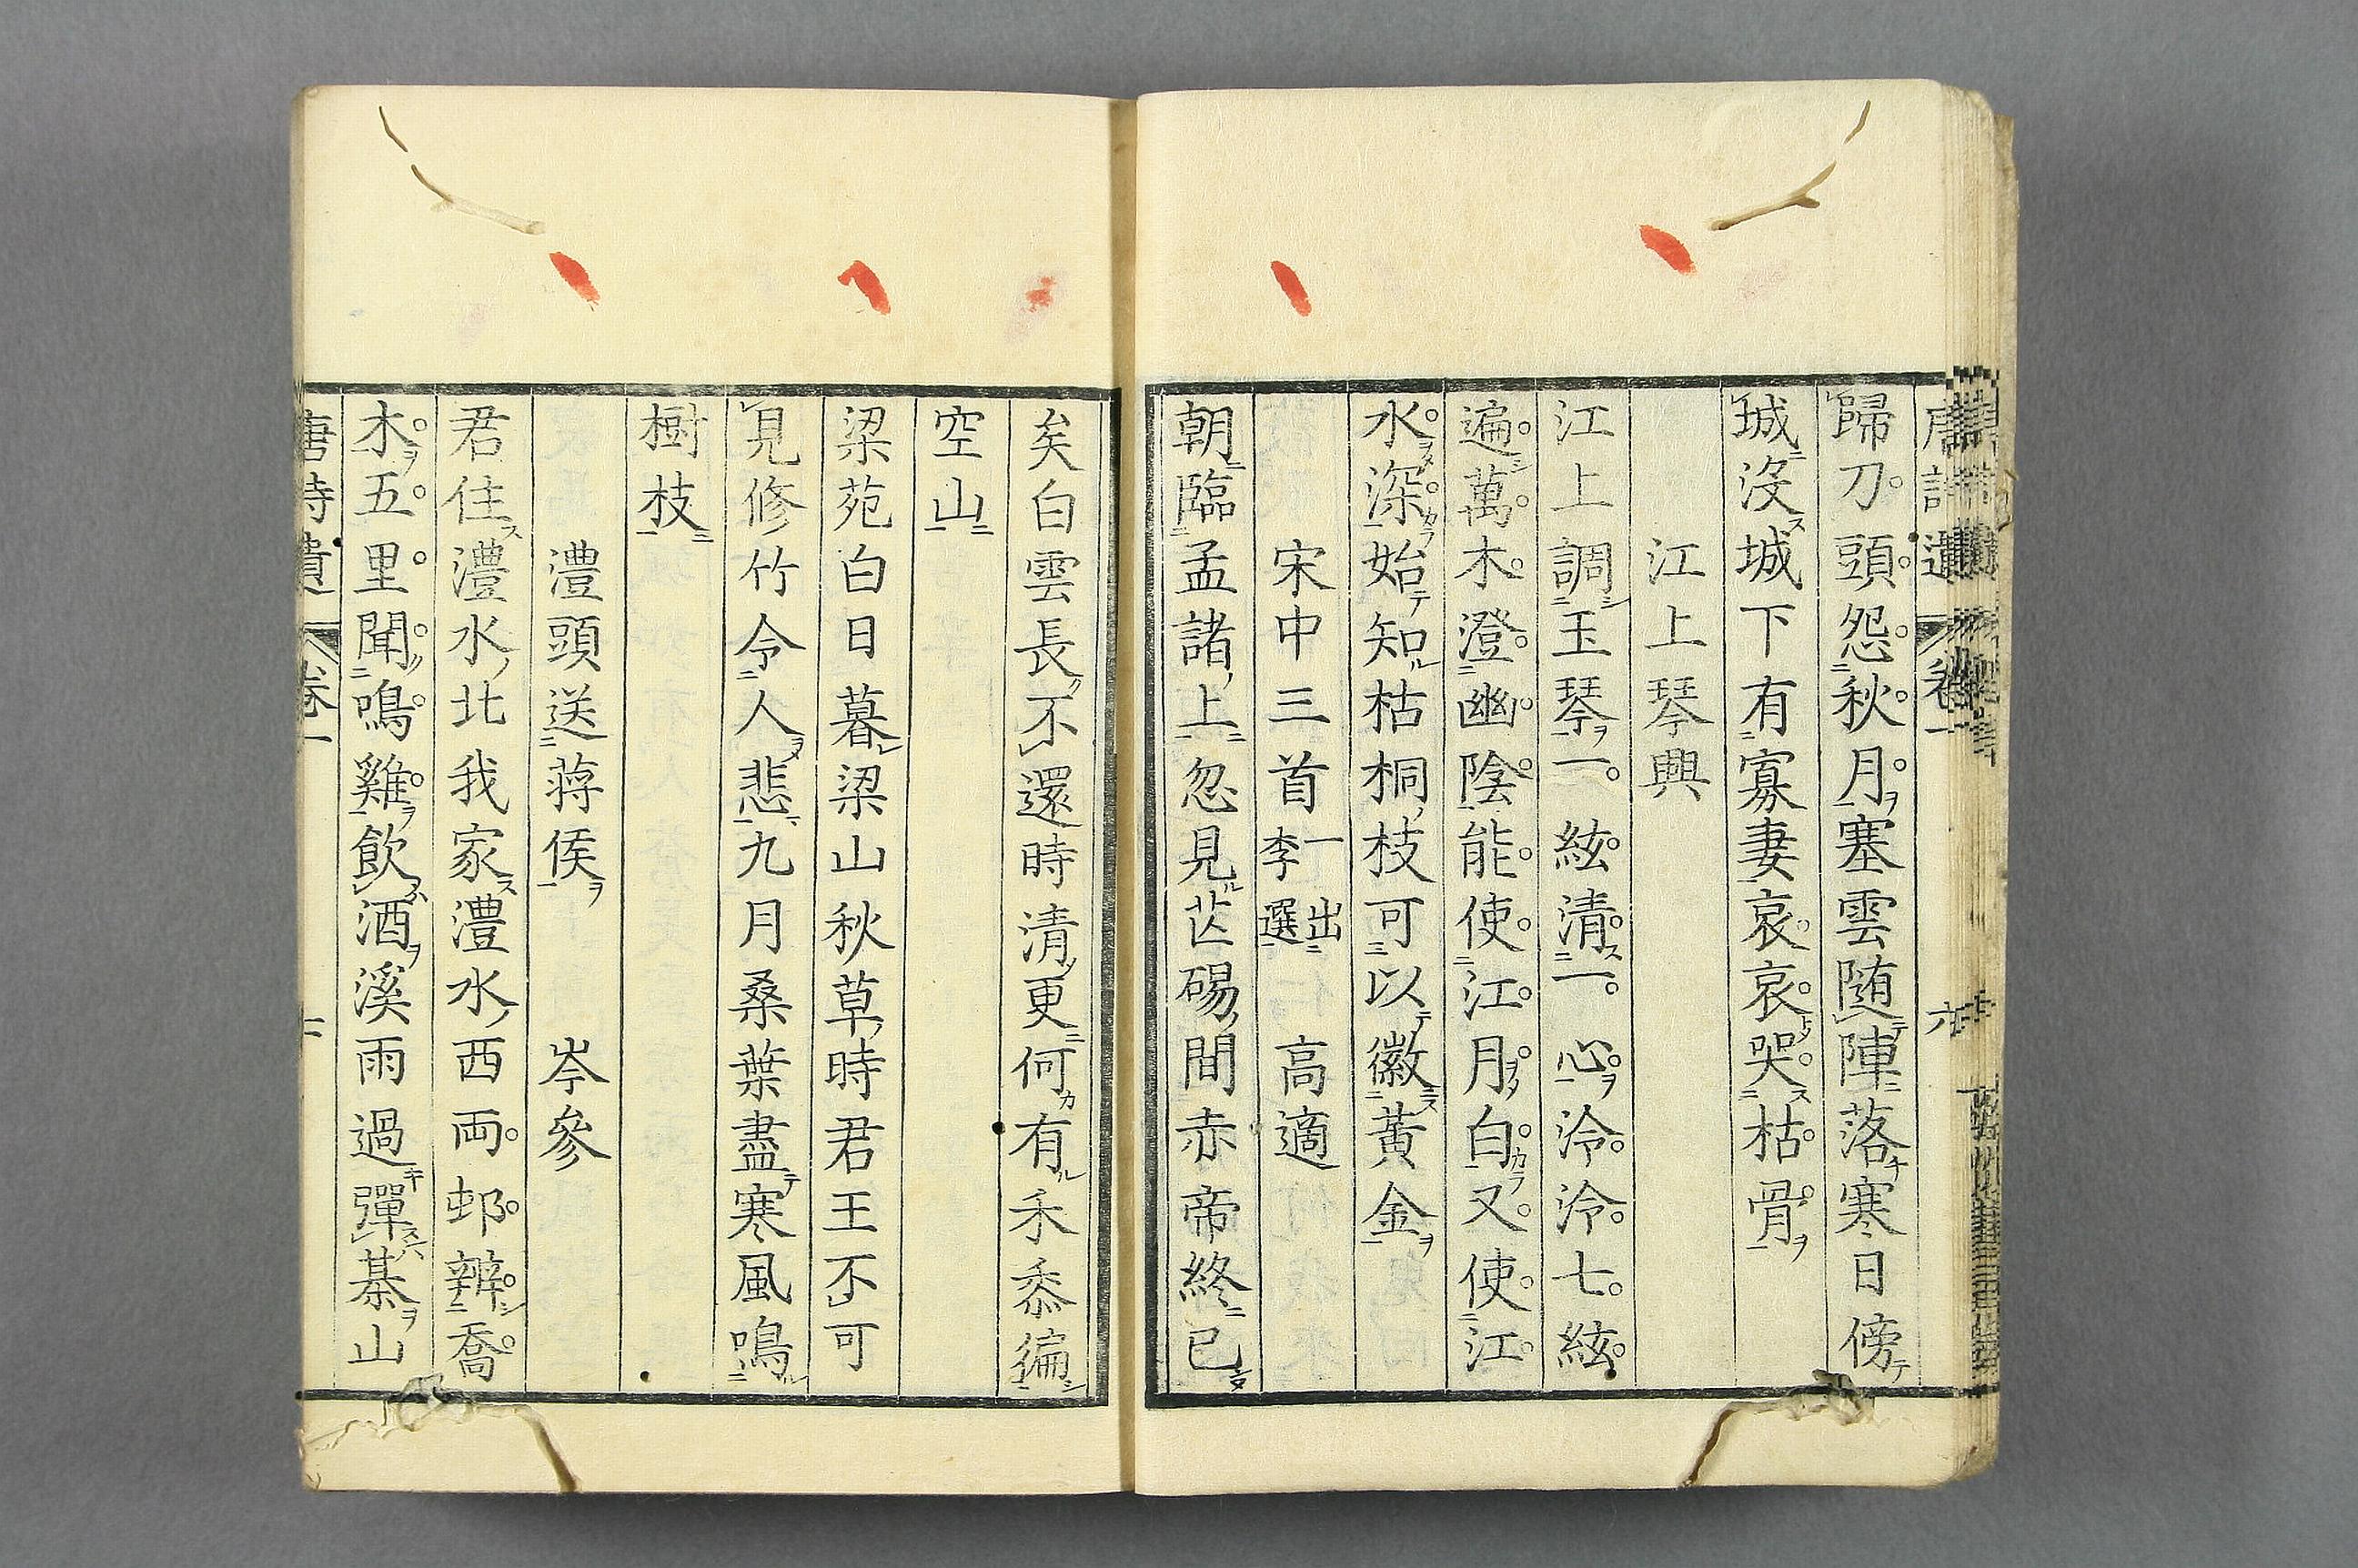 歸刀頭怨秋月塞雲随陣落寒日傍
城沒城下有寡妻哀哀哭枯骨
江上琴興
江上調玉琴一絃清一心泠泠七絃
遍萬木澄幽陰能使江月白又使江
水深始知枯桐枝可以徽黃金
宋中三首一出李選 高適
朝臨孟諸上忽見芒碭間赤帝終已
矣白雲長不還時清更何有禾黍徧
空山
梁苑白日暮梁山秋草時君王不可
見修竹令人悲九月桑葉盡寒風鳴
樹枝
澧頭送蒋侯 岑參
君住澧水北我家澧水西両邨辨喬
木五里聞鳴雞飲酒溪雨過彈棊山